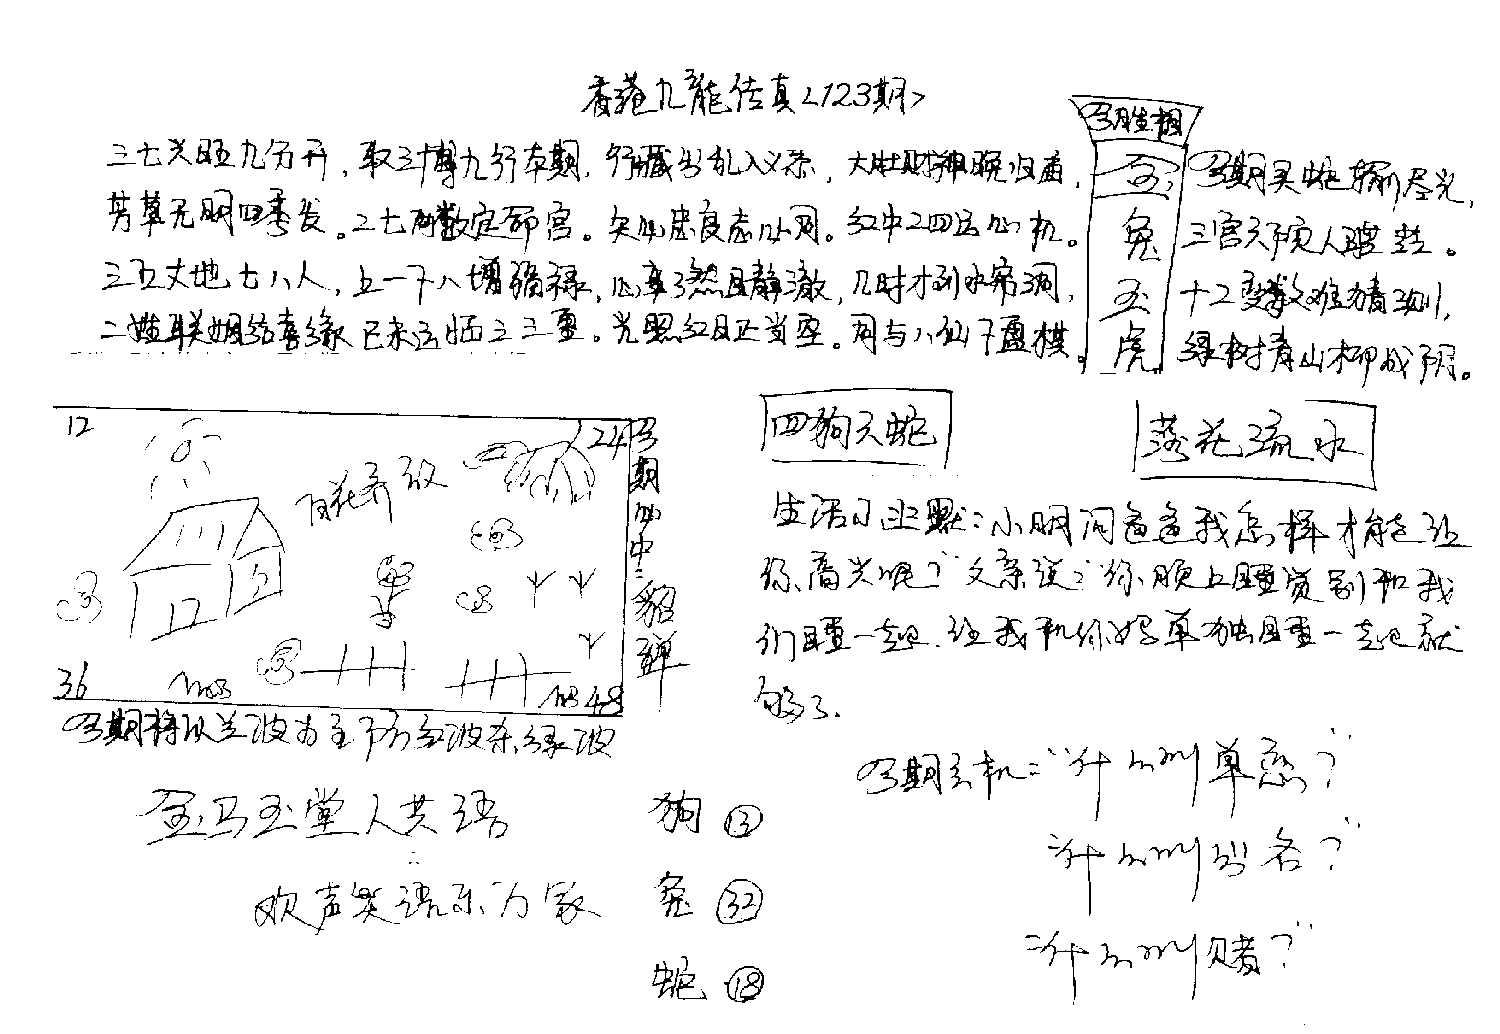 香港九龙传真<123期>
三七兴旺九分开，取三博九行本期，行藏出乱入义宗，大肚财神晚归斋，
芳草无明四季发。二七两数定命宫。矢心忠良志以同。红中二四玄心机。
三五丈地七八人，上一下八增福禄，心事了然且静澈，几时才到水帘洞，
二姓联姻结喜缘 三重。光照红日正当空。同与八仙下盘棋。
今期生相
金
兔
玉
虎
今期买蛇输尽光，
三宫六院人联姓。
十二变数难猜测，
绿树青山柳成阴。
12
24
百花齐放
36
48
今期必中:
今期将以兰波为主 防红波杀绿波
四狗六蛇
落花流水
生活小幽默:小明问爸爸我怎样才能让
你高兴呢?"父亲说:"你晚上睡觉别和我
们睡一起.让我和你妈单独睡一起就
够了.
金马玉堂人共语
欢声笑语乐万家
狗 ⑬
兔 ㉜
蛇 ⑱
今期玄机:"什么叫单恋?"
"什么叫别名?"
"什么叫赌?"